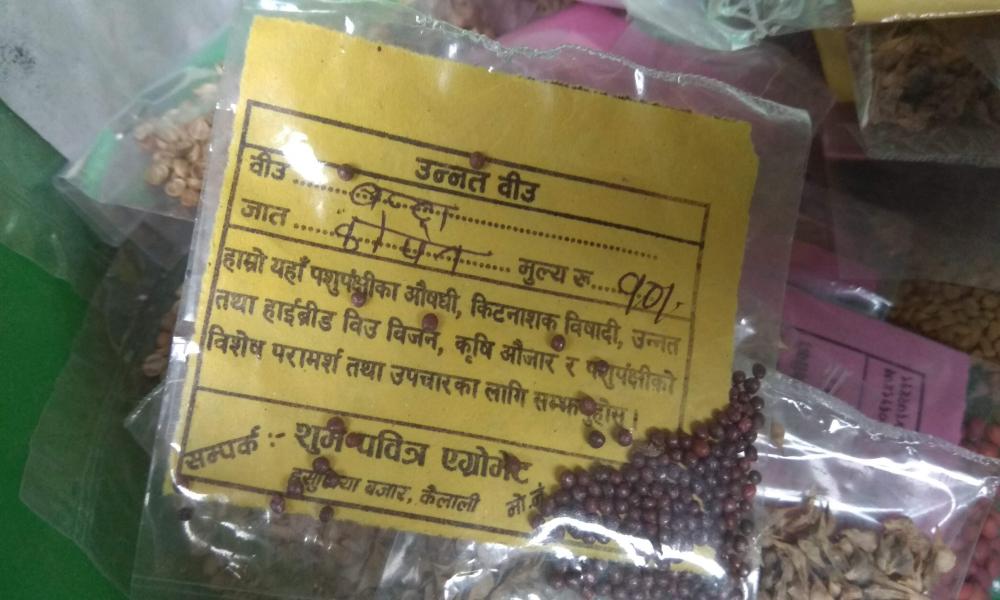 उन्नत वीउ
वीउ ..... बन्दा
जात ..... कोपेन ..... मुल्य रू.....१०/-
हाम्रो यहाँ पशुपंक्षीका औषधी, किटनाशक विषादी, उन्नत
तथा हाईब्रीड विउ विजन, कृषि औजार र पशुपंक्षीको
विशेष परामर्श तथा उपचारका लागि सम्झनुहोस ।
सम्पर्क :- शुभ-पवित्र एग्रोभेट
बजार, कैलाली मो.नं.